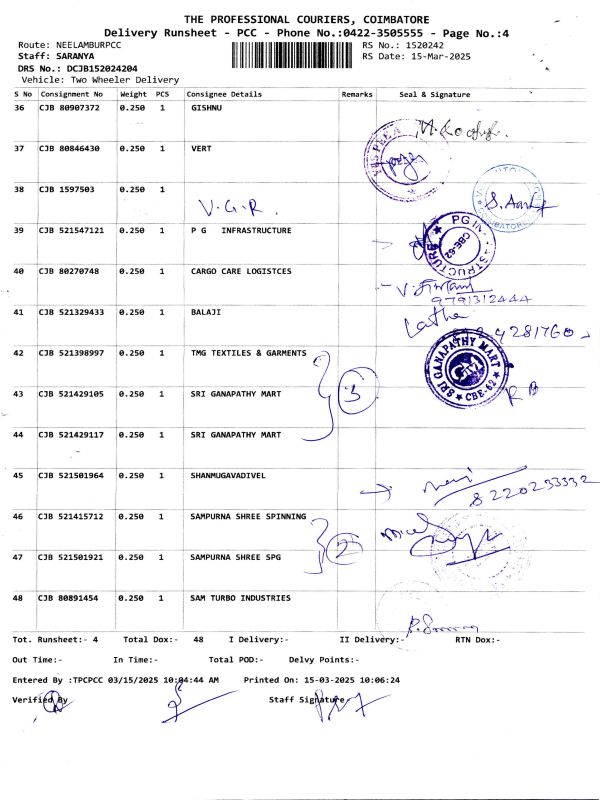 THE PROFESSIONAL COURIERS, COIMBATORE
Delivery Runsheet - PCC - Phone No.:0422-3505555 - Page No.:4
Route: NEELAMBURPCC RS No.: 1520242
Staff: SARANYA RS Date: 15-Mar-2025
DRS No.: DCJB152024204
Vehicle: Two Wheeler Delivery
S No Consignment No Weight PCS Consignee Details Remarks Seal & Signature
36 CJB 80907372 0.250 1 GISHNU
37 CJB 80846430 0.250 1 VERT
38 CJB 1597503 0.250 1
V.G.R. S.
39 CJB 521547121 0.250 1 P G INFRASTRUCTURE
PG IN
CBE-62
40 CJB 80270748 0.250 1 CARGO CARE LOGISTCES
9791312444
41 CJB 521329433 0.250 1 BALAJI
Latha
42 CJB 521398997 0.250 1 TMG TEXTILES & GARMENTS
SRI GANAPATHY MART
CBE-62
43 CJB 521429105 0.250 1 SRI GANAPATHY MART 3
44 CJB 521429117 0.250 1 SRI GANAPATHY MART
45 CJB 521501964 0.250 1 SHANMUGAVADIVEL
8220233332
46 CJB 521415712 0.250 1 SAMPURNA SHREE SPINNING
2
47 CJB 521501921 0.250 1 SAMPURNA SHREE SPG
48 CJB 80891454 0.250 1 SAM TURBO INDUSTRIES
Tot. Runsheet:- 4 Total Dox:- 48 I Delivery:- II Delivery:- RTN Dox:-
Out Time:- In Time:- Total POD:- Delvy Points:-
Entered By :TPCPCC 03/15/2025 10:04:44 AM Printed On: 15-03-2025 10:06:24
Verified By Staff Signature